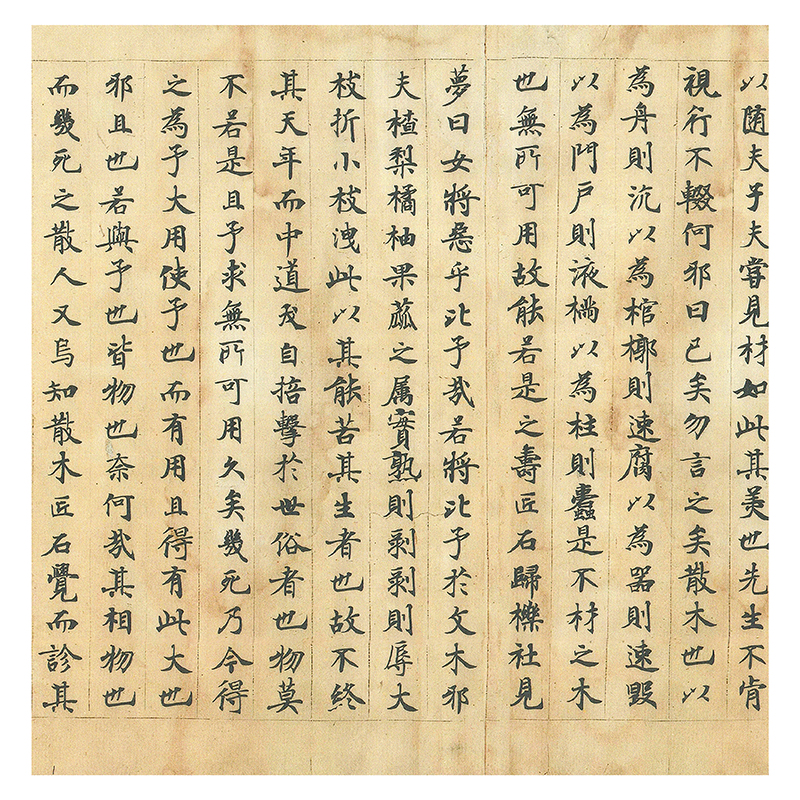 以随夫子夫嘗見材如此其美也先生不肯
視行不輟何邪曰已矣勿言之矣散木也以
為舟則沉以為棺槨則速腐以為器則速毀
以為門戶則液樠以為柱則蠹是不材之木
也無所可用故能若是之壽匠石歸櫟社見
夢曰女將惡乎比予哉若將比予於文木邪
夫楂梨橘柚果蓏之属實熟則剥剥則辱大
枝折小枝洩此以其能苦其生者也故不終
其天年而中道夭自掊擊於世俗者也物莫
不若是且予求無所可用久矣幾死乃今得
之為予大用使予也而有用且得有此大也
邪且也若與予也皆物也奈何哉其相物也
而幾死之散人又烏知散木匠石覺而診其